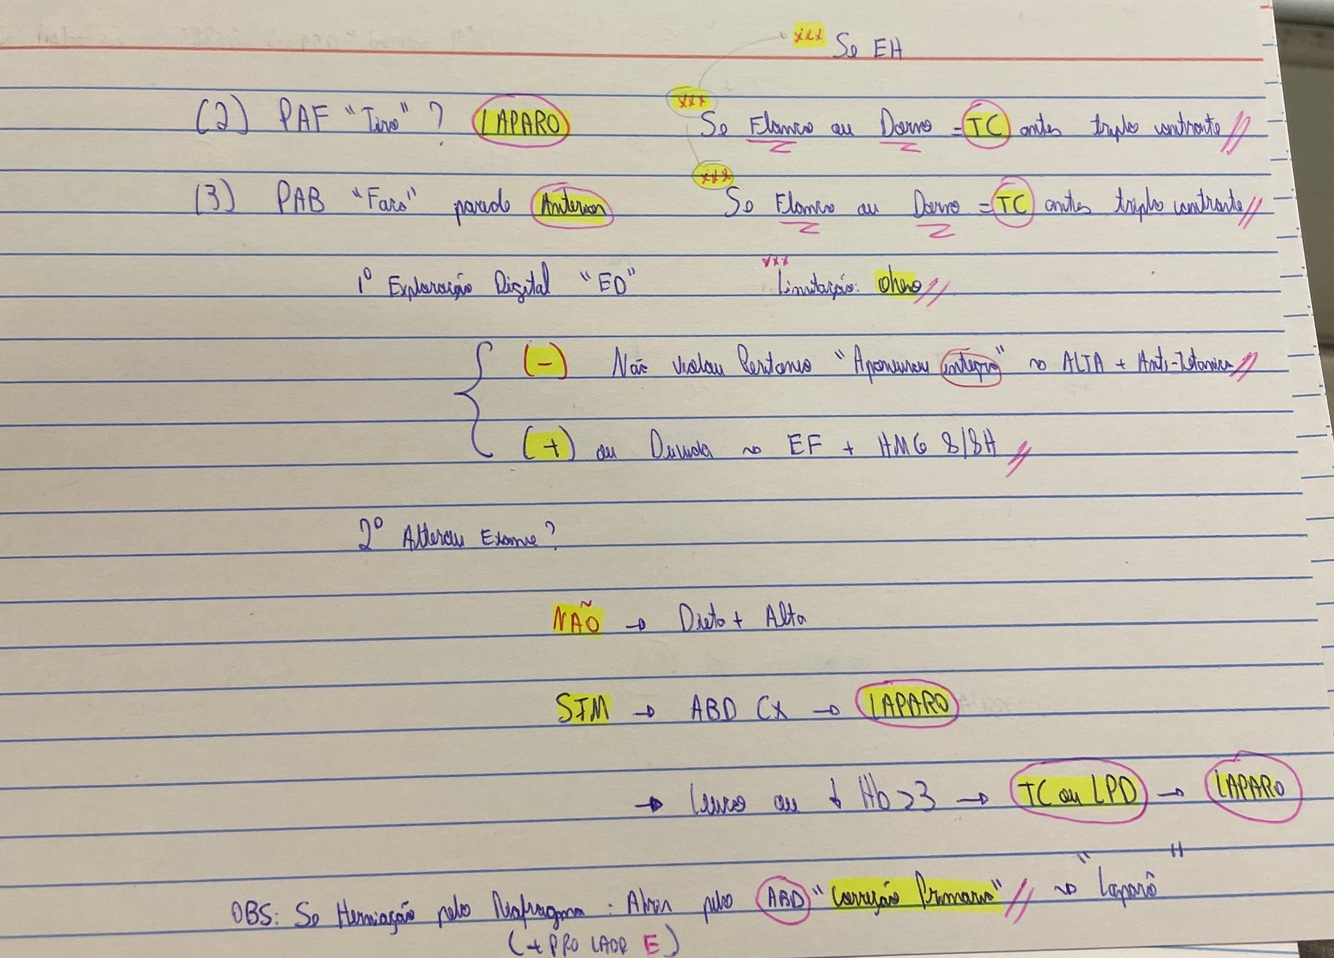 xxx Se EH
(2) PAF "Tiro" ? LAPARO xxx Se Flanco ou Dorso = TC antes triplo contraste //
(3) PAB "Faca" parede Anterior xxx Se Flanco ou Dorso = TC antes triplo contraste //
1º Exploração Digital "ED" xxx Limitação: obeso //
(-) Não violou Peritonio "Aponeurou integra" ~> ALTA + Anti-Tetanica //
(+) ou Duvida ~> EF + HMG 8/8H //
2º Alterou Exame?
NÃO → Dieta + Alta
SIM → ABD CX → LAPARO
→ Leuco ou ↓ Hb >3 → TC ou LPD → LAPARO
OBS: Se Herniação pelo Diafragma : Abrir pelo ABD "Correção Primaria" // ~> "Laparô"
(+ PRO LADO E)